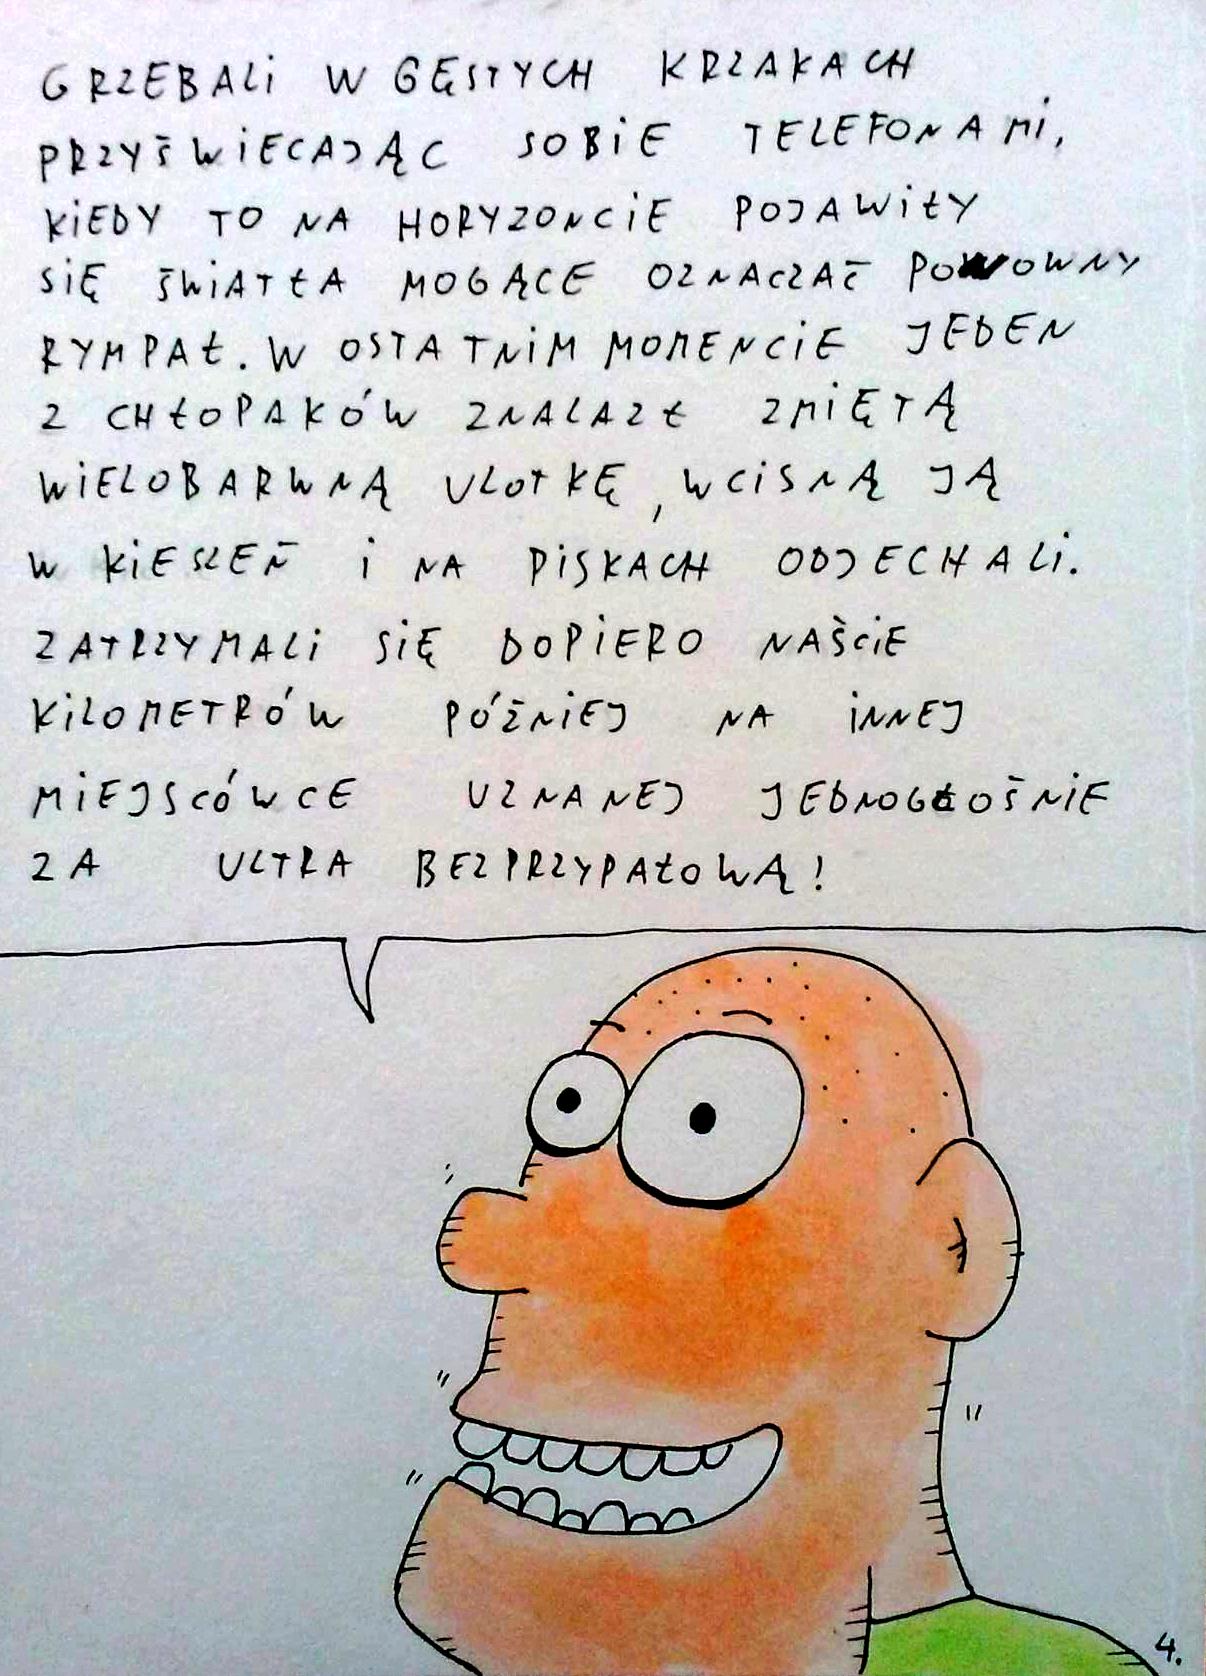 GRZEBALI W GĘSTYCH KRZAKACH
PRZYŚWIECAJĄC SOBIE TELEFONAMI,
KIEDY TO NA HORYZONCIE POJAWIŁY
SIĘ ŚWIATŁA MOGĄCE OZNACZAĆ POWOWNY
RYMPAŁ. W OSTATNIM MOMENCIE JEDEN
Z CHŁOPAKÓW ZNALAZŁ ZMIĘTĄ
WIELOBARWNĄ ULOTKĘ, WCISNĄ JĄ
W KIESZEŃ I NA PISKACH ODJECHALI.
ZATRZYMALI SIĘ DOPIERO NAŚCIE
KILOMETRÓW PÓŹNIEJ NA INNEJ
MIEJSCÓWCE UZNANEJ JEDNOGŁOŚNIE
ZA ULTRA BEZPRZYPAŁOWĄ!
4.